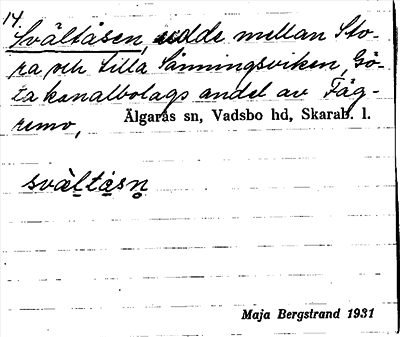 14.
Svältåsen, udde mellan Sto-
ra och Lilla Sånningsviken, Gö-
ta kanalbolags andel av Fäg-
remo, Älgarås sn, Vadsbo hd, Skarab. l.
svältåsn̥
Maja Bergstrand 1931